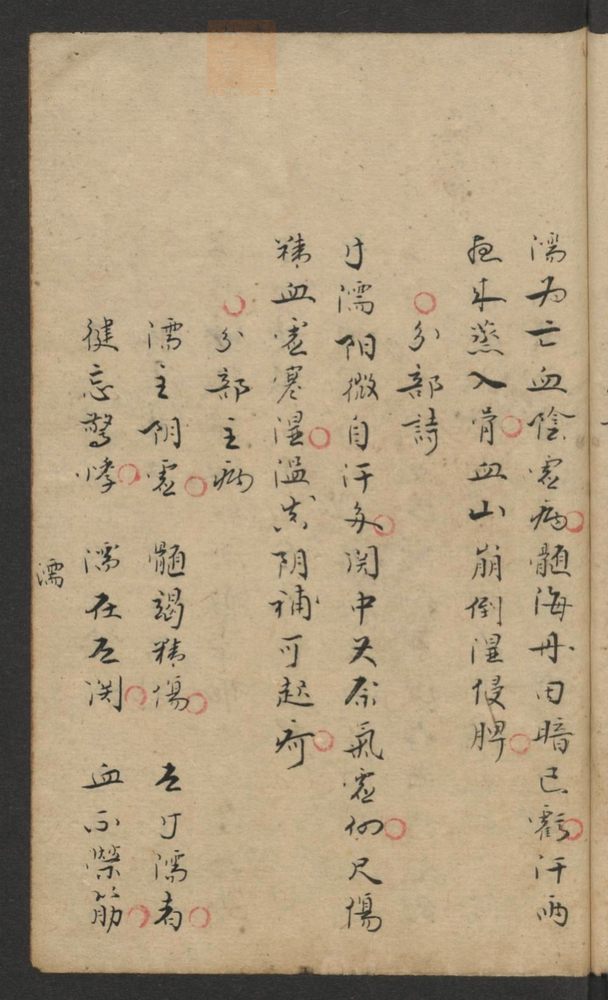 濡为亡血陰虛病髓海丹田暗已虧汗雨
夜来蒸入骨血山崩倒湿侵脾
分部詩
寸濡阳微自汗多関中其奈氣虚何尺傷
精血虛寒湿温真阴補可起疴
分部主病
濡主阴虛　髓竭精傷　左寸濡者
健忘驚悸　濡在左関　血不榮筋
濡